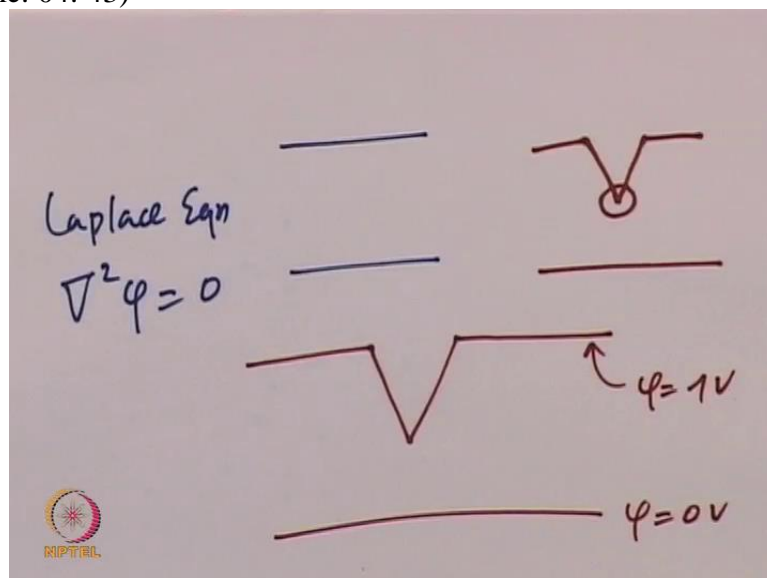 Laplace Eqn
∇²φ = 0
φ = 1V
φ = 0V
NPTEL